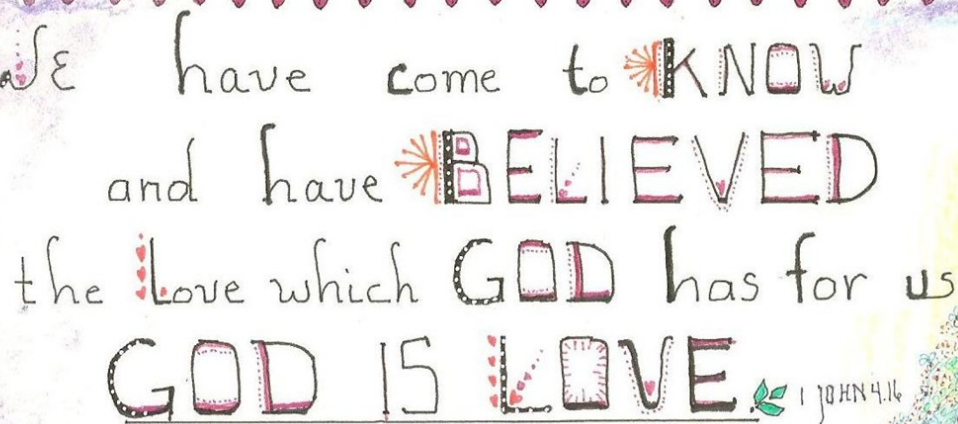 WE have come to KNOW
and have BELIEVED
the Love which GOD has for us
GOD IS LOVE. 1 JOHN 4.16